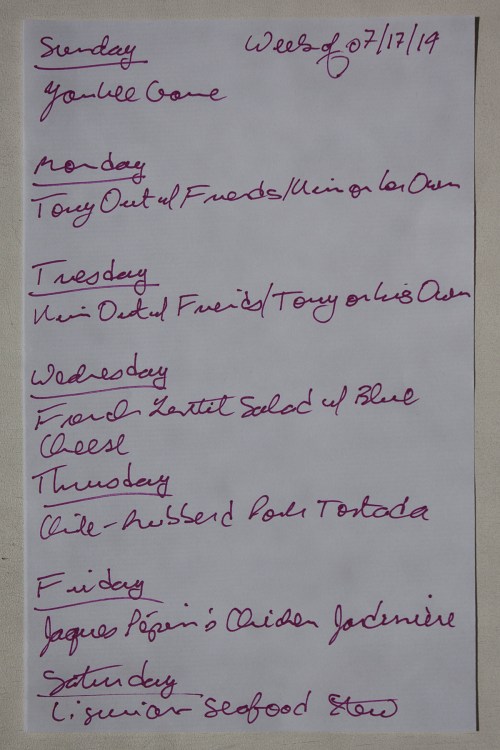 Sunday Week of 07/17/19
Yankee Game
Monday
Tony Out w/ Friends/Kim on her Own
Tuesday
Kim Out w/ Friends/Tony on his Own
Wednesday
French Lentil Salad w/ Blue
Cheese
Thursday
Chile-Rubbed Pork Tostada
Friday
Jaques Pépin's Chicken Jardinière
Saturday
Ligurian Seafood Stew